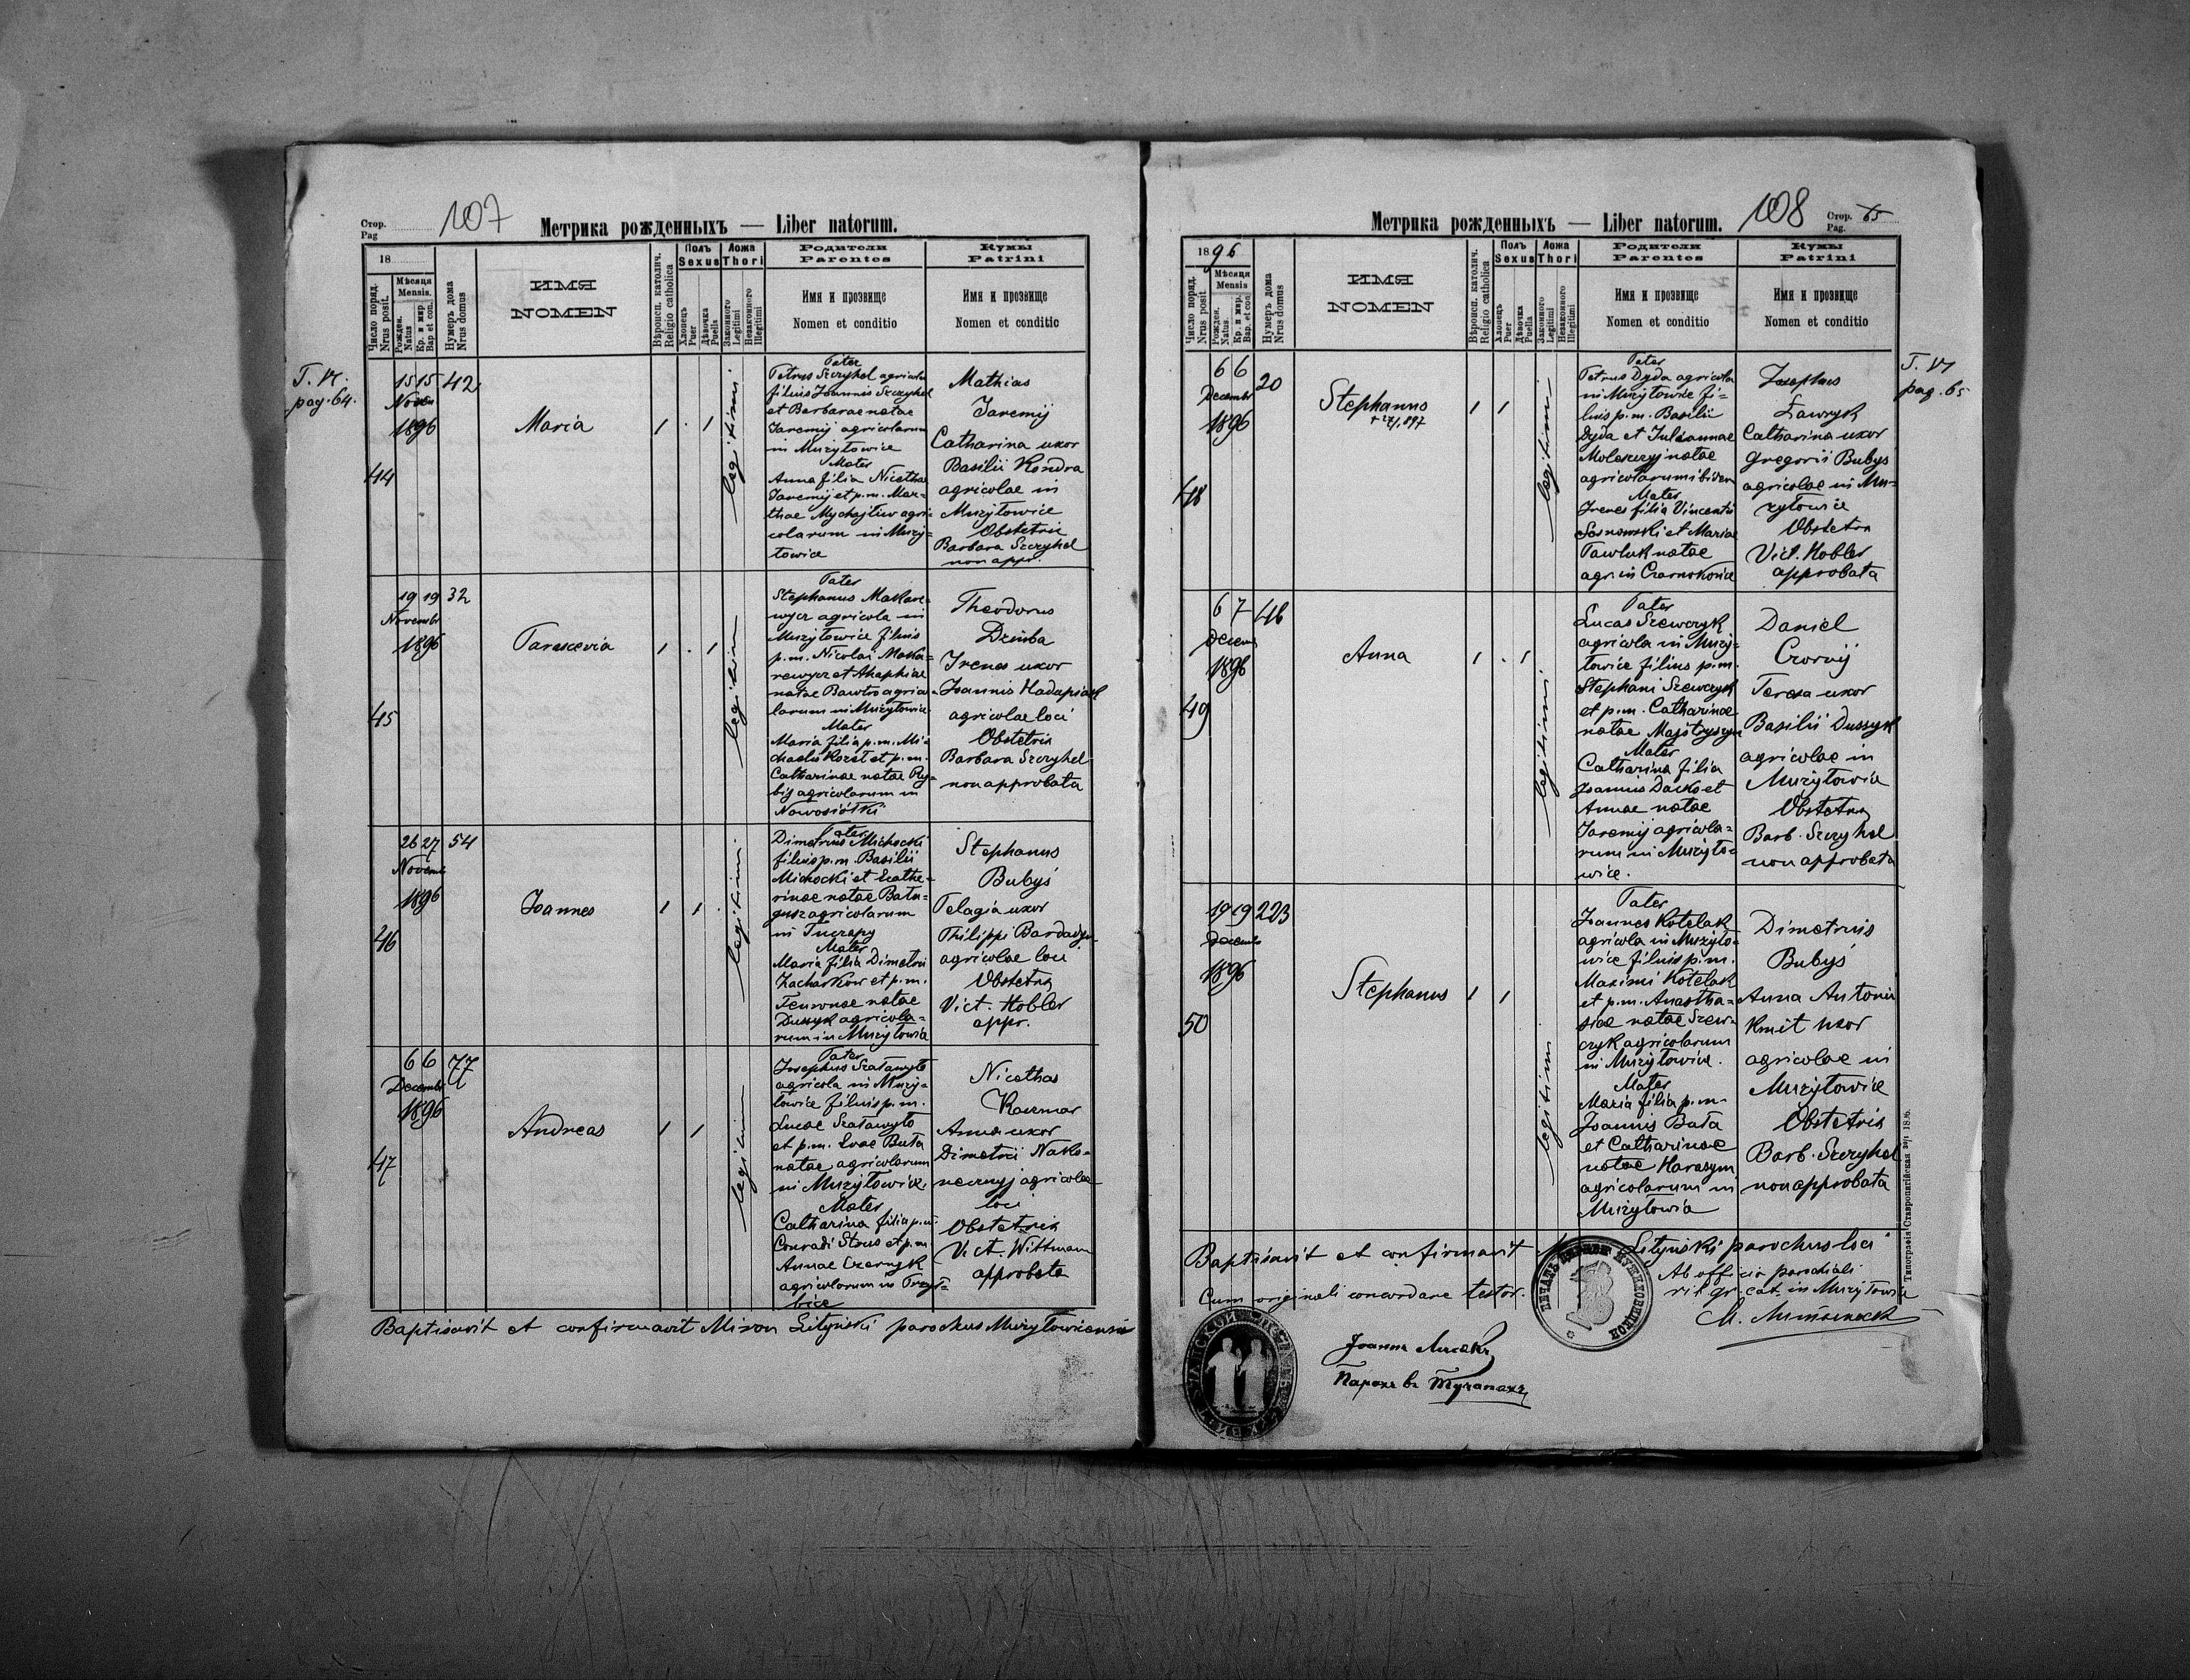 Стор.
Pag
107
Метрика рожденныхъ — Liber natorum.
18
Число поряд.
Nrus posit.
Мѣсяця
Mensis.
Рожден.
Natus
Кр. и мир.
Bap et con.
Нумеръ дома
Nrus domus
ИМЯ
NOMEN
Вѣроисп. католич.
Religio catholica
Полъ
Sexus
Хлопецъ
Puer
Дѣвочка
Puella
Ложа
Thori
Законного
Legitimi
Незаконного
Illegitimi
Родители
Parentes
Имя и прозвище
Nomen et conditio
Кумы
Patrini
Имя и прозвище
Nomen et conditio
T. VI.
pag. 64.
44
15 15 42
Novem
1896
Maria
legitimi
Pater
Petrus Szczyhel agricola
filius Joannis Szczyhel
et Barbarae natae
Jaremij agricolarum
in Mużyłowice
Mater
Anna filia Nicetha
Jaremij et p.m. Mar=
thae Mychajliw agri=
colarum in Muży=
łowice
Mathias
Jaremij
Catharina uxor
Basilii Kondra
agricolae in
Mużyłowice
Obstetrix
Barbara Szczyhel
non appr.
45
19 19 32
Novembr
1896
Parascevia
legitimi
Pater
Stephanus Makare=
wycz agricola in
Mużyłowice filius
p.m. Nicolai Maka=
rewycz et Ahaphiae
natae Bawtro agrico=
larum in Mużyłowice
Mater
Maria filia p.m. Mi=
chaelis Kozct et p.m.
Catharinae natae Ry=
bij agricolarum in
Nowosiółki
Theodorus
Dziuba
Irenes uxor
Joannis Hadupiak
agricolae loci
Obstetrix
Barbara Szczyhel
non approbata
46
26 27 54
Novemb
1896
Joannes
legitimi
Pater
Dimetrius Michocki
filius p.m. Basilii
Michocki et Cathe=
rinae natae Batu=
gusz agricolarum
in Tuczapy
Mater
Maria filia Dimetri
Zacharkow et p.m.
Fennae natae
Dussyk agricola=
rum in Mużyłowice
Stephanus
Bubyś
Pelagia uxor
Philippi Bardadyn
agricolae loci
Obstetrix
Vict. Hobler
appr.
47
6 6 77
Decembr
1896
Andreas
legitimi
Pater
Josephus Szatanyło
agricola in Muży=
łowice filius p.m.
Lucae Szatanyło
et p.m. Evae Buta
natae agricolarum
in Mużyłowice.
Mater
Catharina filia p.m.
Conradi Stous et p.m.
Annae Czornyk
agricolarum in Przył=
bice
Nicethas
Kaczmar
Anna uxor
Dimetrii Nako=
necznyj agricolae
loci
Obstetrix
Vict. Wittmann
approbata
Baptisavit et confirmavit Miron Lityński parochus Mużyłowicensis
Метрика рожденныхъ — Liber natorum.
108
Стор.
Pag.
65
1896
Число поряд.
Nrus posit.
Мѣсяця
Mensis
Рожден.
Natus.
Кр. и мир.
Bap. et con
Нумеръ дома
Nrus domus
ИМЯ
NOMEN
Вѣроисп. католич.
Religio catholica
Полъ
Sexus
Хлопецъ
Puer
Дѣвочка
Puella
Ложа
Thori
Законного
Legitimi
Незаконного
Illegitimi
Родители
Parentes
Имя и прозвище
Nomen et conditio
Кумы
Patrini
Имя и прозвище
Nomen et conditio
T. VI
pag. 65
48
6 6 20
Decembr
1896
Stephanus
legitimi
Pater
Petrus Dyda agricola
in Mużyłowice fi=
lius p.m. Basilii
Dyda et Juliannae
Moleszczyj natae
agricolarum ibidem
Mater
Irenes filia Vincentii
Sosnowski et Mariae
Pawluk natae
agr. in Czarnokońce
Josephus
Ławryk
Catharina uxor
Gregorii Bubys
agricolae in Mu=
żyłowice
Obstetrx
Vict. Hobler
approbata
49
6 7 46
Decemb
1896
Anna
legitimi
Pater
Lucas Szewczyk
agricola in Muży=
łowice filius p.m.
Stephani Szewczyk
et p.m. Catharinae
natae Majstryszyn
Mater
Catharina filia
Joannis Dacko et
Annae natae
Jaremij agricola=
rum in Mużyło=
wice.
Daniel
Czornij
Teresa uxor
Basilii Dussyk
agricolae in
Mużyłowice
Obstetrix
Barb. Szczyhel
non approbata
50
19 19 223
Decemb
1896
Stephanus
legitimi
Pater
Joannes Kotelak
agricola in Mużyło=
wice filius p.m.
Maximi Kotelak
et p.m. Anastha=
siae natae Szew=
czyk agricolarum
in Mużyłowice.
Mater
Maria filia p.m.
Joannis Bata
et Catharinae
natae Harasym
agricolarum in
Mużyłowice
Dimetrius
Bubyś
Anna Antonii
Kmit uxor
agricolae in
Mużyłowice
Obstetrix
Barb. Szczyhel
non approbata
Baptisavit et confirmavit Lityński parochus loci
Cum originali concordare testor.
Ab officio parochiali
rit. gr. cat. in Mużyłowice
Парохъ въ Тучапахъ